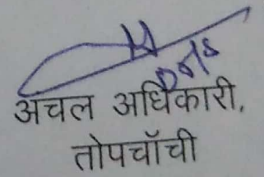 अचल अधिकारी,
तोपचॉची